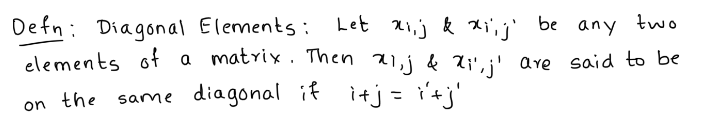 Defn: Diagonal Elements: Let xi,j & xi',j' be any two
elements of a matrix. Then xi,j & xi',j' are said to be
on the same diagonal if i+j = i'+j'